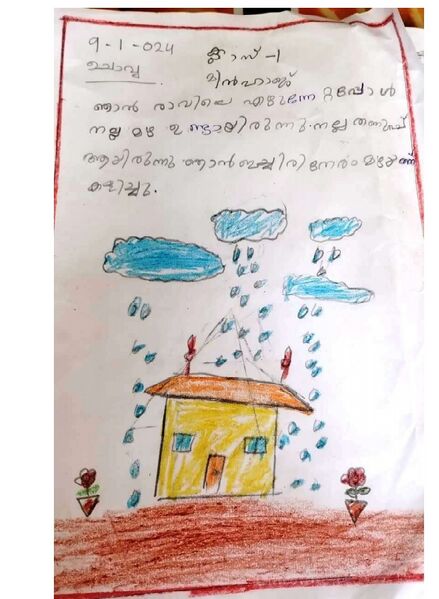 9-1-024 ക്ലാസ്-1
ചൊവ്വ മിൻഹാജ്
ഞാൻ രാവിലെ എഴുന്നേറ്റപ്പോൾ
നല്ല മഴ ഉണ്ടായിരുന്നു. നല്ല തണുപ്പ്
ആയിരുന്നു ഞാൻ ഇച്ചിരി നേരം മഴയത്ത്
കളിച്ചു.